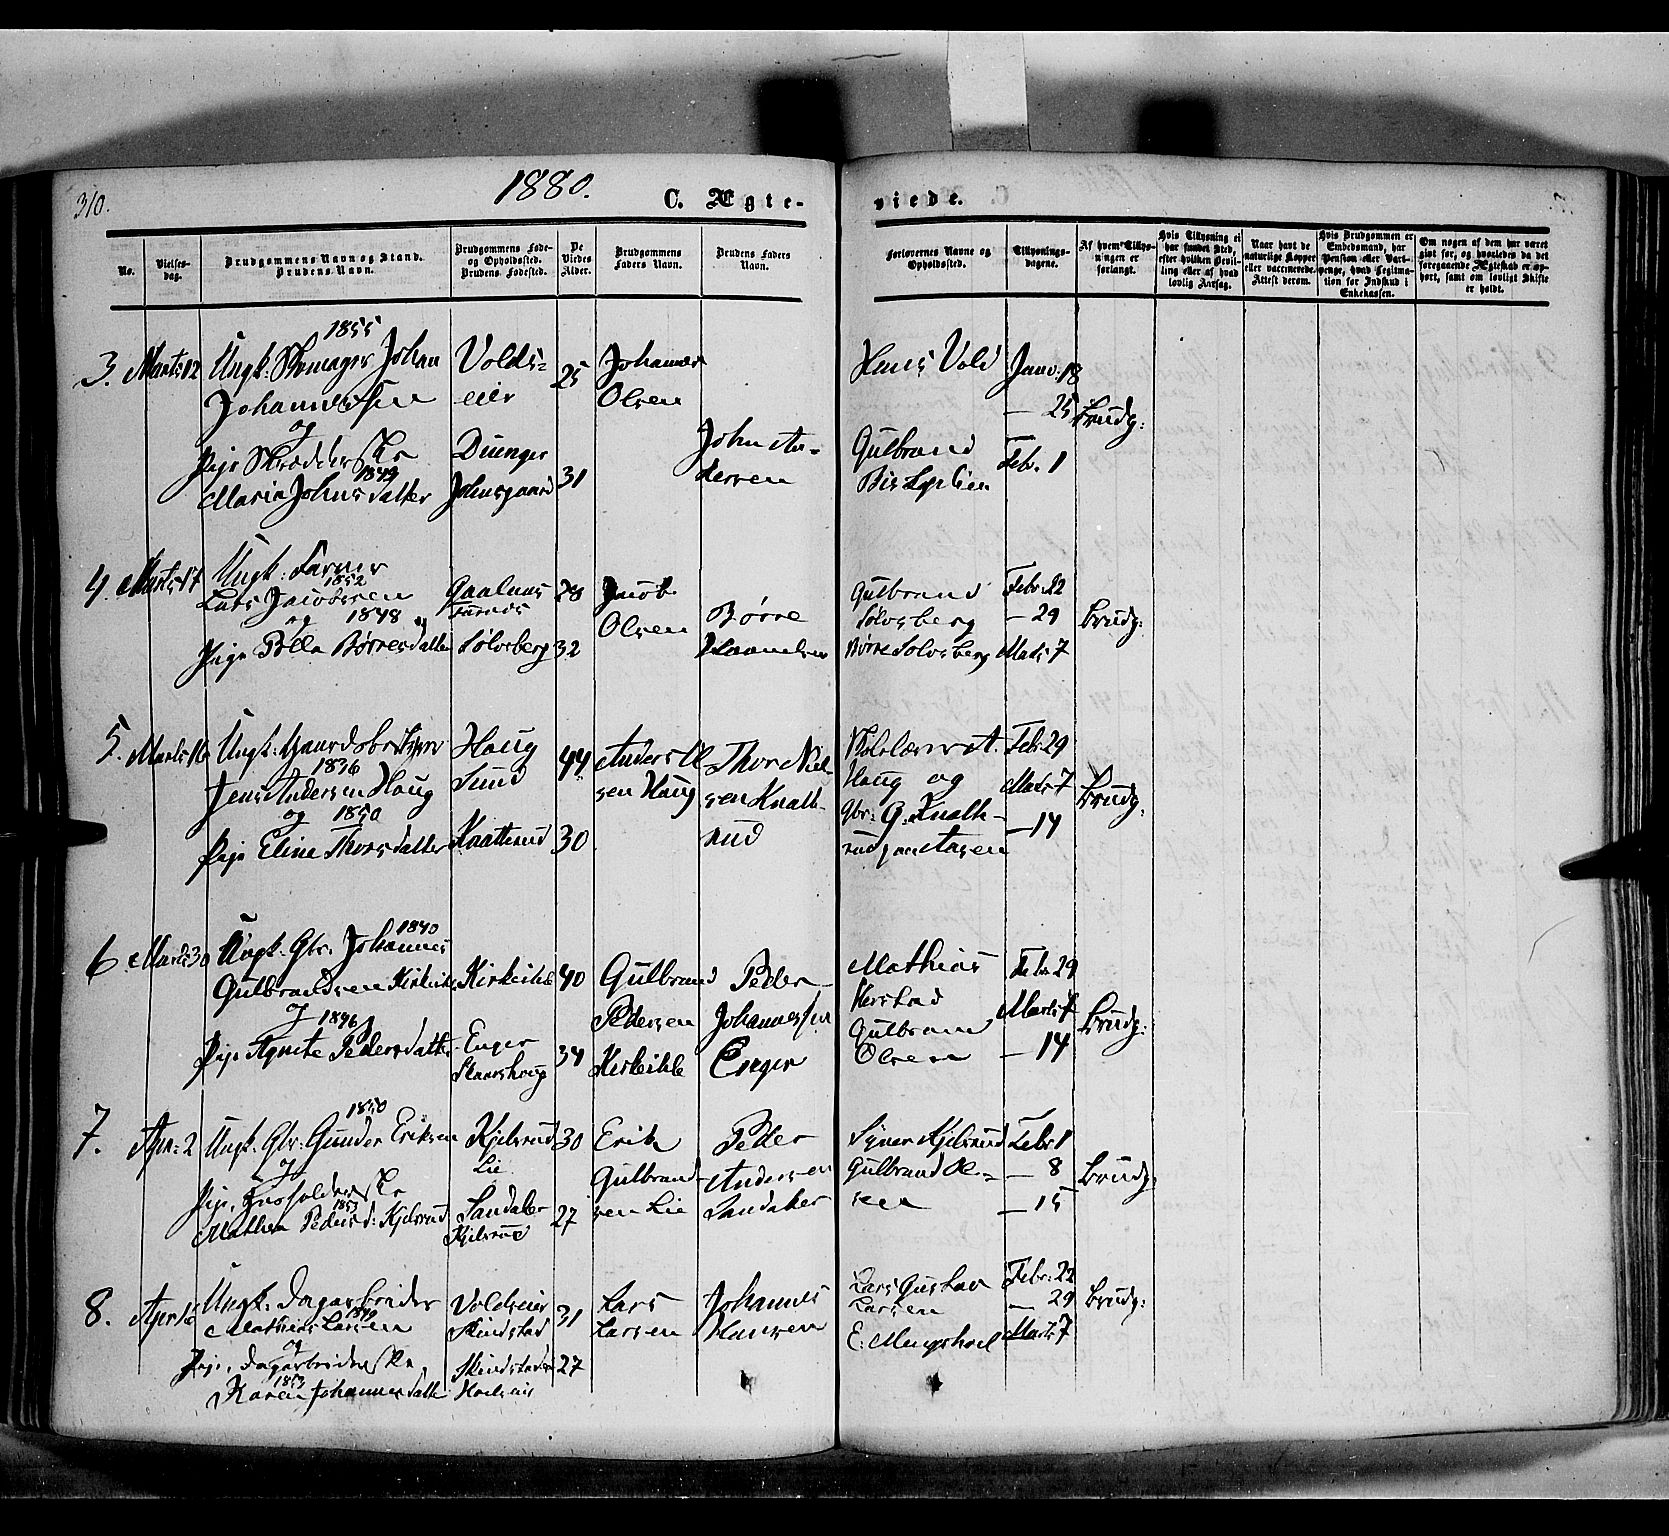 310.
1880.
C. Ægte-
viede.
No.
Vielses-
dag.
Brudgommens Navn og Stand.
Brudens Navn.
Brudgommens Føde-
og Opholdssted.
Brudens Fødested.
De
Viedes
Alder.
Brudgommens
Faders Navn.
Brudens Faders
Navn.
Forlovernes Navne og
Opholdssted.
Tillysnings-
dagene.
Af hvem Tillys-
ningen er
forlangt.
Hvis Tillysning ei
har fundet Sted,
efter hvilken Bevil-
ling eller af hvad
lovlig Aarsag.
Naar havt de
naturlige Kopper
eller vaccinerede.
Attest derom.
Hvis Brudgommen er
Embedsmand, har
Pension eller Vart-
penge, hvad Legitima-
tion for Indskud i
Enkekassen.
Om nogen af dem har været
gift før, og hvorledes da det
foregaaende Ægteskab er op-
hørt, samt om lovligt Skifte
er holdt.
1855
3. Marts 12 Ungk: Skomager Johan Volds= 25 Johannes Hans Vold Janv. 18
Johannessen eier Olsen — 25 Brudg:
og
Pige Skrædderske Duenger John An- Gulbrand Febr. 1
1849
Maria Johnsdatter Johnsgaard 31 dersen
4. Marts 17 Ungk: Farver
1852
Lars Jacobsen 28 Jacob Gulbrand Febr. 22
og 1848 Olsen Børre Sølvsberg — 29 Brudg:
Pige Børresdatter Sølvsberg 32 Børre Sølvsberg Marts 7
5. Marts 16 Ungk: Haug 44 Anders Thor Niel- Febr. 29
1836
Jens Andersen Haug Sund sen Haug sen Knatt- Haug og Marts 7 Brudg:
og 1850 rud G. Knatt- — 14
Pige Eline Thorsdatter Knatterud 30
6. Marts 30 Ungk. Gbr. Johannes 1840
Gulbrandsen Kirkeihle Kirkeihle 40 Gulbrand Peder Mathias Febr. 29
og 1846 Pedersen Johannessen Marts 7 Brudg:
Pige Agnete Pedersdatter Enger 34 Kirkeihle Enger Gulbrand
Olsen — 14
1850
7. Apr: 2 Ungk. Gbr: Gunder Eriksen Kjelsrud 30 Erik Peder Kjelsrud Febr. 1
og Lie Gulbrand- Andersen Gulbrand Ol- — 8 Brudg:
Pige, sen Lie Sandaker sen — 15
1853
Mathea Peders d: Kjelsrud Sandaker 27
Kjelsrud
8. Apr: 16 Ungk. Dagarbeider Voldseier 31 Lars Johannes Lars Gustav Febr: 22
1849
Mathias Larsen Skindstad Larsen Hansen Larsen — 29 Brudg:
og E. Mengshoel Marts 7
Pige, Dagarbeiderske 27
1853
Karen Johannesdatter